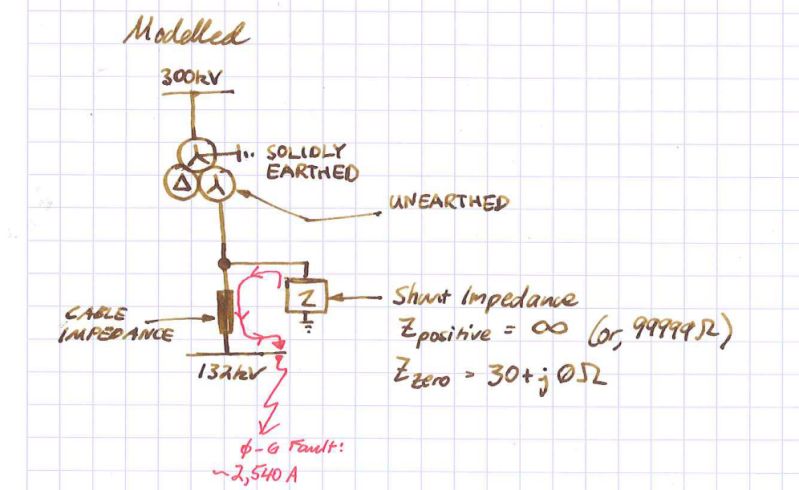 Modelled
300kV
SOLIDLY
EARTHED
Δ
UNEARTHED
Z
CABLE
IMPEDANCE
Shunt Impedance
Zpositive = ∞ (or, 99999Ω)
Zzero = 30+j0Ω
132kV
φ-G Fault:
~2,540A